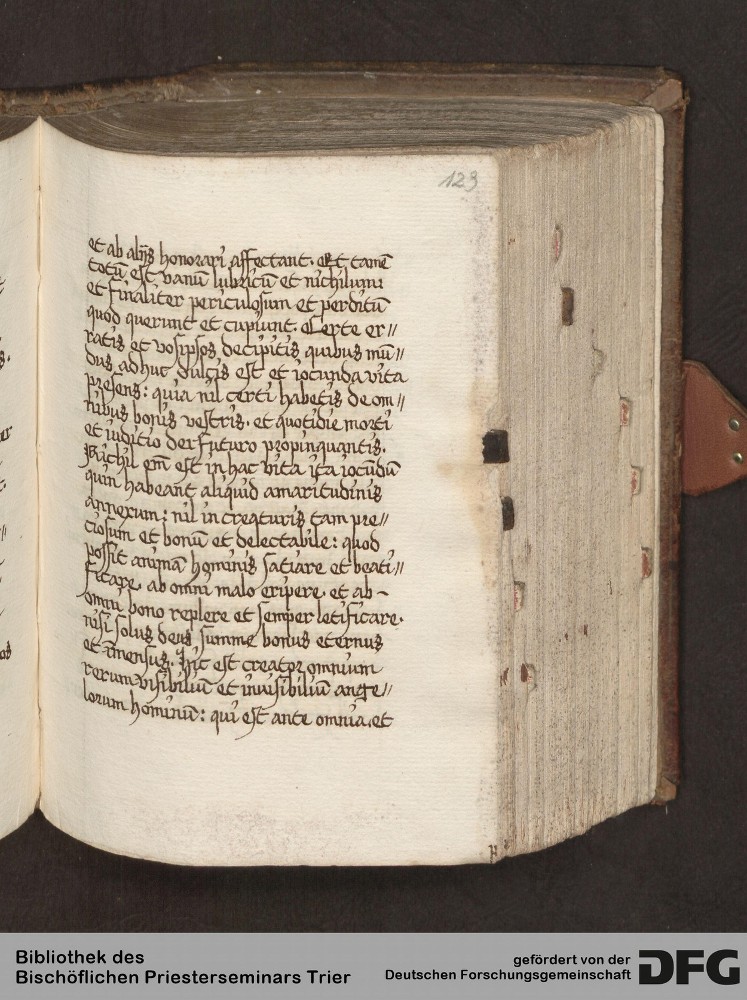 123
et ab alijs honorari affectant. Et tamē
totū est vanū lubricū et nichilum
et finaliter periculosum et perditū
quod querunt et cupiunt. Certe er//
ratis et vosipsos decipitis quibus mū//
dus adhuc dulcis est et iocunda vita
presens: quia nil certi habetis de om//
nibus bonis vestris. et quotidie morti
et iuditio dei futuro propinquantis.
Nichil em̄ est in hac vita ita iocūdū
quin habeant aliquid amaritudinis
annexum: nil in creaturis tam pre//
ciosum et bonū et delectabile: quod
possit animā hominis satiare et beati//
ficare. ab omni malo eripere et ab-
omni bono replere et semper letificare.
nisi solus deus summe bonus eternus
et īmensus. Hic est creator omnium
rerum visibiliū et invisibiliū ange//
lorum hominū: qui est ante omnia. et
Bibliothek des
Bischöflichen Priesterseminars Trier
gefördert von der
Deutschen Forschungsgemeinschaft
DFG